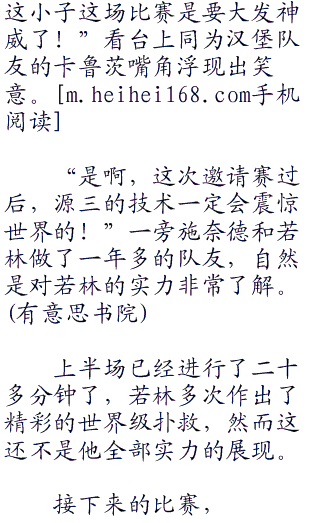 这小子这场比赛是要大发神
威了！”看台上同为汉堡队
友的卡鲁茨嘴角浮现出笑
意。[m.heihei168.com手机
阅读]
“是啊，这次邀请赛过
后，源三的技术一定会震惊
世界的！”一旁施奈德和若
林做了一年多的队友，自然
是对若林的实力非常了解。
(有意思书院)
上半场已经进行了二十
多分钟了，若林多次作出了
精彩的世界级扑救，然而这
还不是他全部实力的展现。
接下来的比赛，